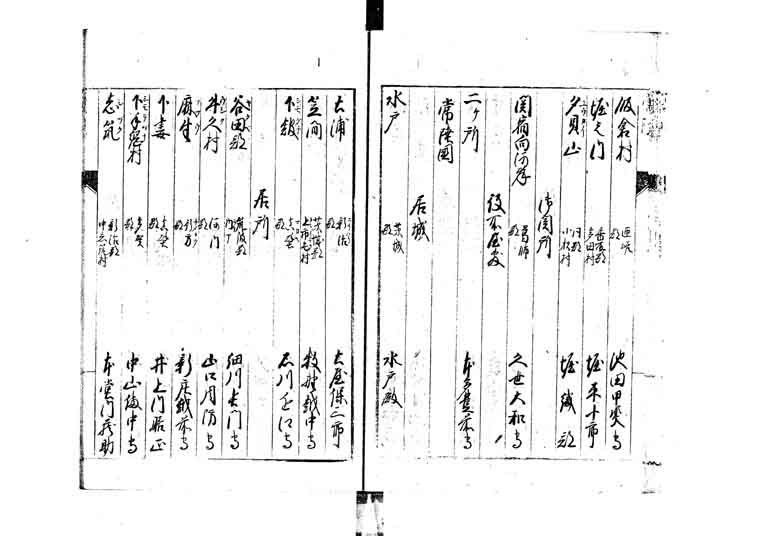 飯倉村 匝瑳郡 池田甲斐守
堀之内 香取郡 多田村 堀平十郎
夕貝山 同郡 小松村 堀織部
御関所
関宿向河岸 葛飾郡 久世大和守
役所屋敷
二ヶ所 本多豊前守
常陸国
居城
水戸 茨城郡 水戸殿
土浦 新治郡 土屋保三郎
笠間 茨城郡 上市毛村 牧野越中守
下館 真壁郡 石川近江守
居所
谷田部 筑波郡 細川長門守
牛久村 河内郡 山口周防守
麻生 行方郡 新庄越前守
下妻 真壁郡 井上門
下手綱村 多賀郡 中山備中守
志筑 新治郡 中志筑村 本堂